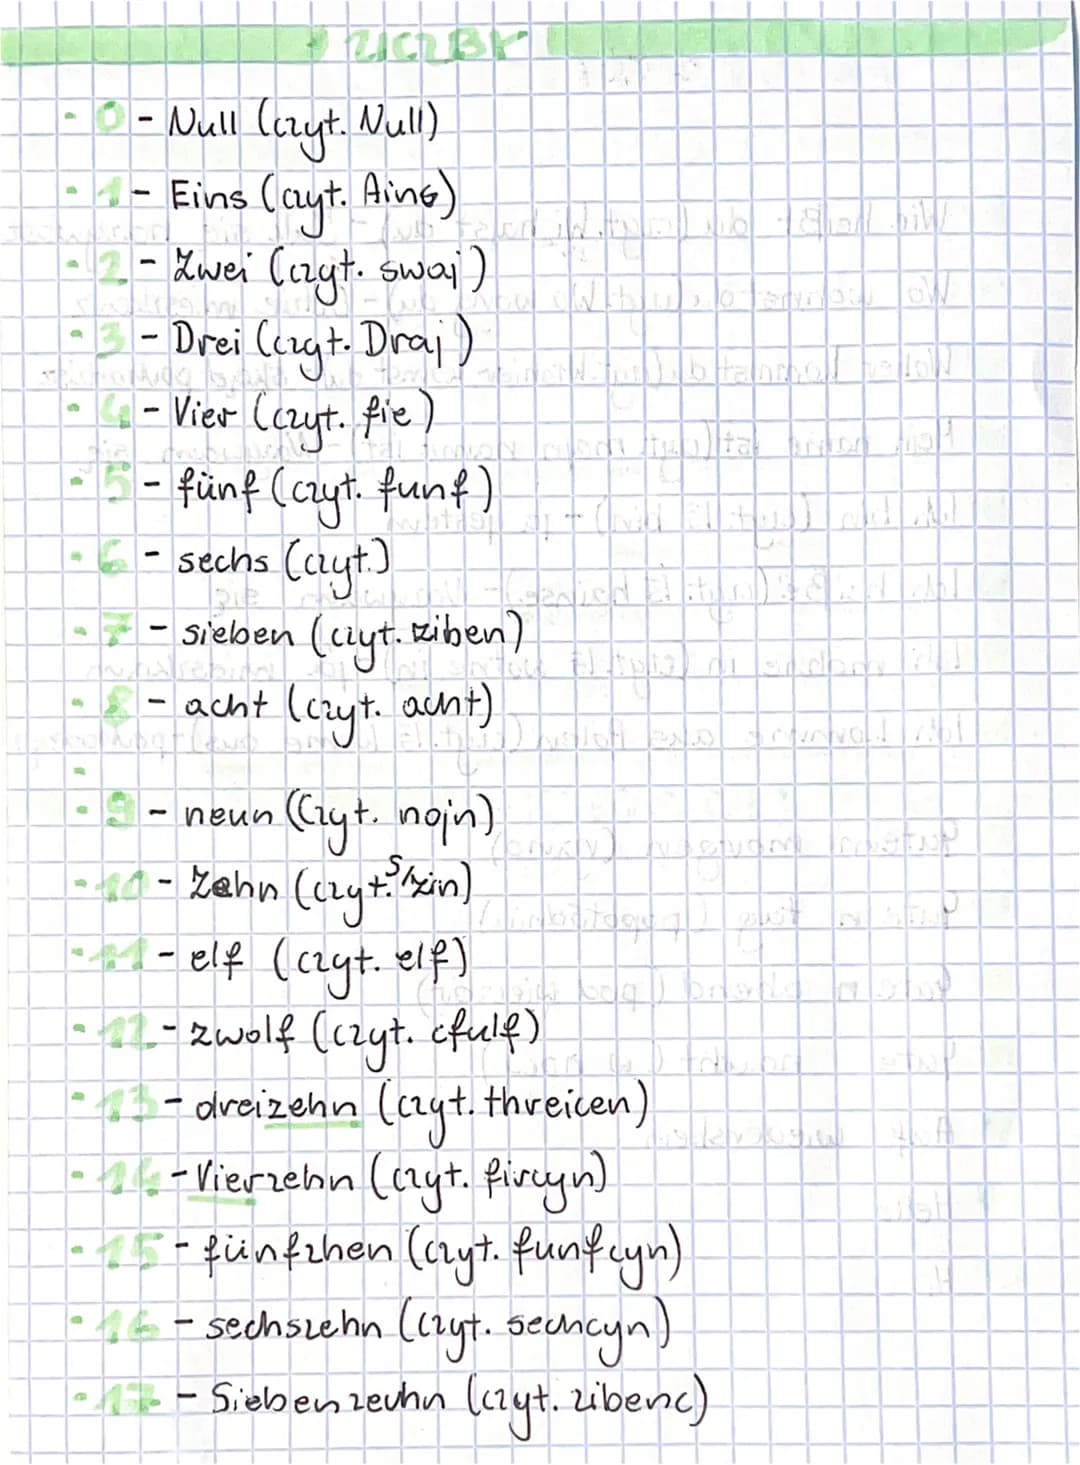 LICZBY
- 0 - Null (czyt. Null)
- 1 - Eins (czyt. Ains)
- 2 - Zwei (czyt. swaj)
- 3 - Drei (czyt. Draj)
- 4 - Vier (czyt. fie)
- 5 - fünf (czyt. funf)
- 6 - sechs (czyt.)
- 7 - sieben (czyt. ziben)
- 8 - acht (czyt. acht)
-
- 9 - neun (czyt. nojn)
- 10 - Zehn (czyt. s/zin)
- 11 - elf (czyt. elf)
- 12 - zwolf (czyt. cfulf)
- 13 - dreizehn (czyt. threicen)
- 14 - Vierzehn (czyt. fircyn)
- 15 - fünfzhen (czyt. funfcyn)
- 16 - sechszehn (czyt. sechcyn)
- 17 - Siebenzeuhn (czyt. zibenc)